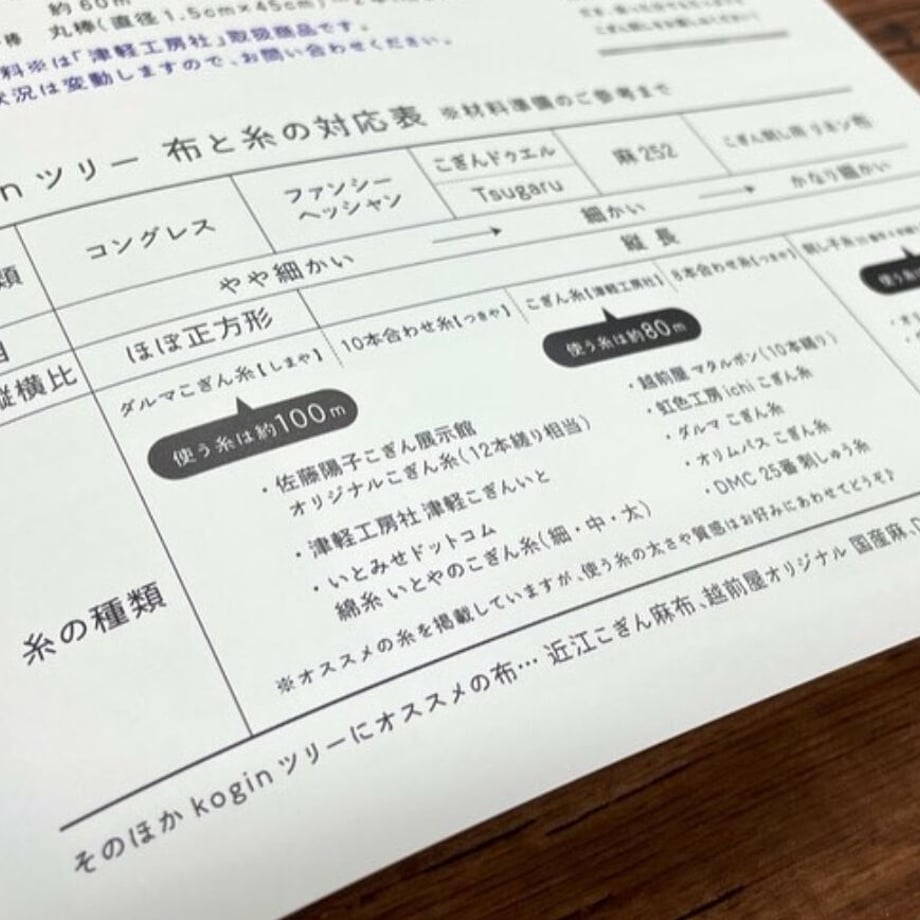 約60m
棒 丸棒(直径1.5cm×45cm)
料※は「津軽工房社」取扱商品です。
状況は変動しますので、お問い合わせください。
n ツリー 布と糸の対応表 ※材料準備のご参考まで
類 コングレス ファンシーヘッシャン こぎんドゥエル Tsugaru 麻252 こぎん刺し用リネン布
やや細かい → 細かい → かなり細かい
目 ほぼ正方形 縦長
縦横比
糸の種類
ダルマこぎん糸【しまや】 10本合わせ糸【つきや】 こぎん糸【津軽工房社】 8本合わせ糸【つきや】 刺し子糸
使う糸は約100m
使う糸は約80m
使う糸
・佐藤陽子こぎん展示館
オリジナルこぎん糸(12本縒り相当)
・津軽工房社 津軽こぎんいと
・いとみせドットコム
綿糸 いとやのこぎん糸(細・中・太)
・越前屋 マタルボン(10本縒り)
・虹色工房 ichi こぎん糸
・ダルマ こぎん糸
・オリムパス こぎん糸
・DMC 25番刺しゅう糸
※オススメの糸を掲載していますが、使う糸の太さや質感はお好みにあわせてどうぞ♪
そのほか kogin ツリーにオススメの布… 近江こぎん麻布、越前屋オリジナル 国産麻、